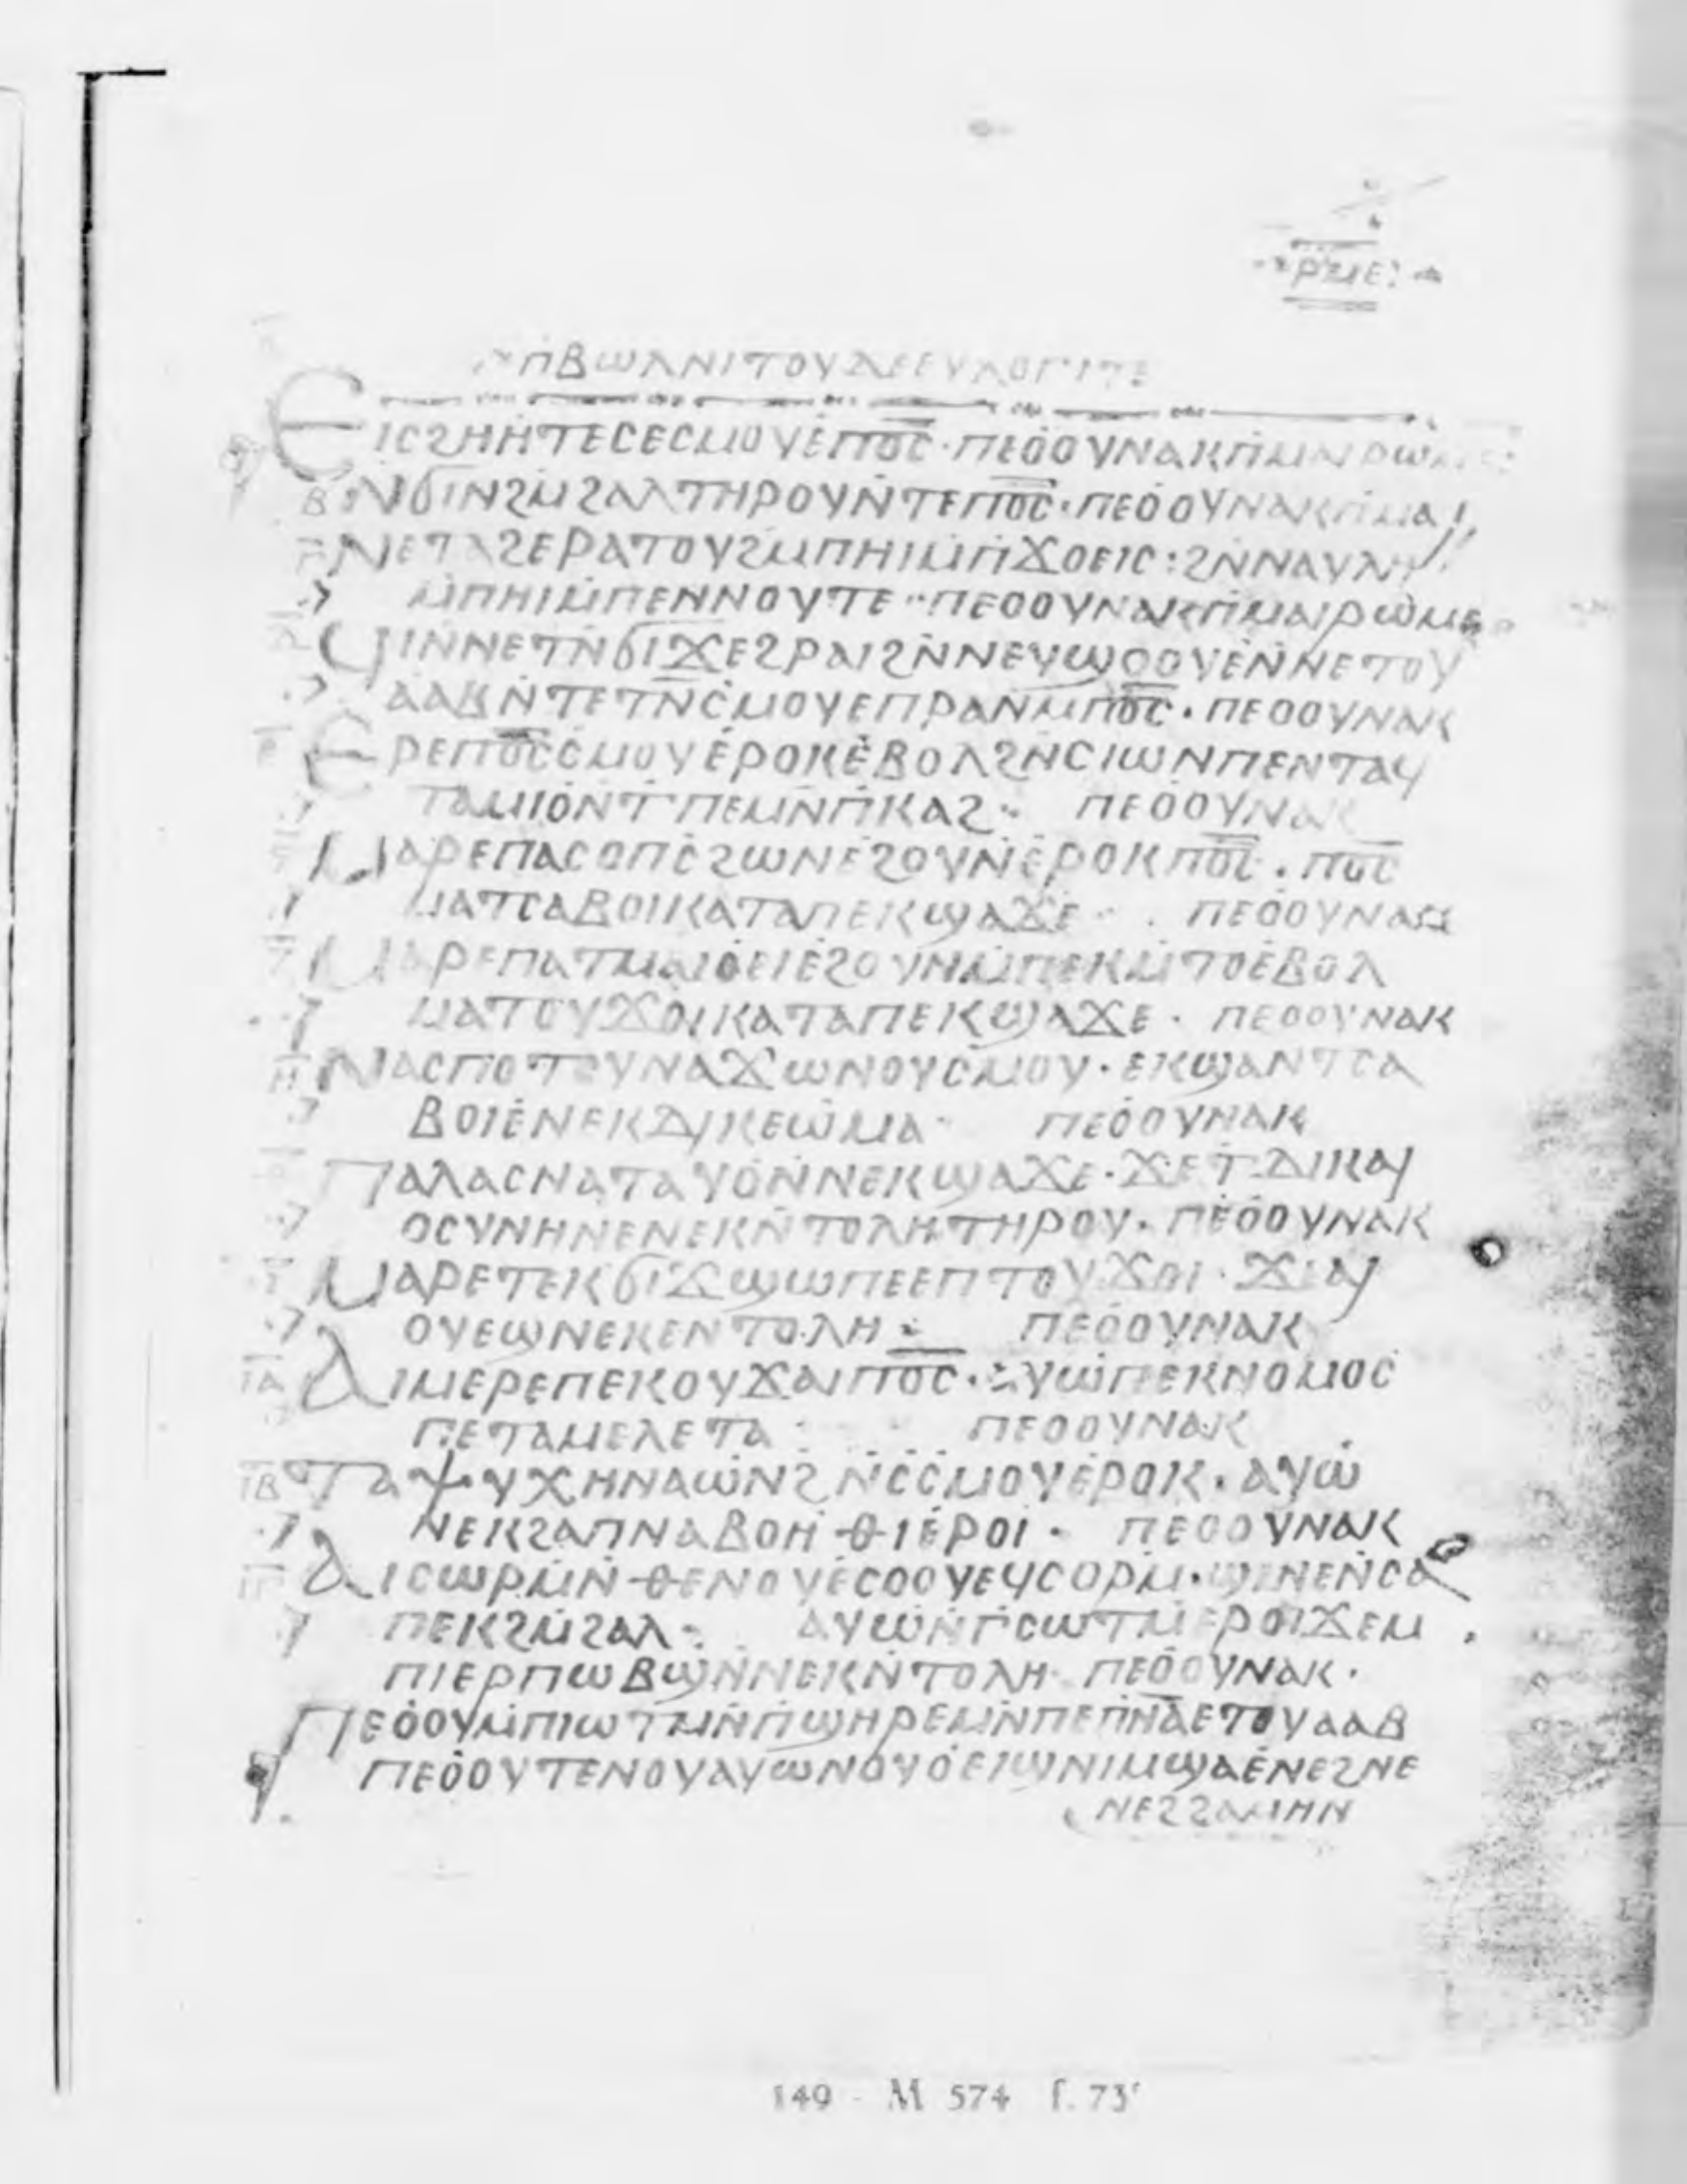 ⲣⲙⲉ
ⲡⲃⲱⲗ ⲛⲓⲧⲟⲩⲇⲉ ⲉⲩⲗⲟⲅⲓⲧⲉ
ⲉⲓⲥϩⲏⲏⲧⲉⲥⲉⲥⲙⲟⲩⲉⲡⲟ̅ⲥ̅· ⲡⲉⲟⲟⲩⲛⲁⲕⲡⲙⲁⲓⲣⲱⲙⲉ
ⲃ ⲛϭⲓⲛϩⲙϩⲁⲗⲧⲏⲣⲟⲩⲛⲧⲉⲡⲟ̅ⲥ̅· ⲡⲉⲟⲟⲩⲛⲁⲕⲡⲙⲁⲓ
ⲅ ⲛⲉⲧⲁϩⲉⲣⲁⲧⲟⲩϩⲙⲡⲏⲓⲙⲡϫⲟⲉⲓⲥ: ϩⲛⲛⲁⲩⲗⲏ
ⲙⲡⲏⲓⲙⲡⲉⲛⲛⲟⲩⲧⲉ·· ⲡⲉⲟⲟⲩⲛⲁⲕⲡⲙⲁⲓⲣⲱⲙⲉ
ϥⲓⲛⲛⲉⲧⲛϭⲓϫⲉϩⲣⲁⲓϩⲛⲛⲉⲩϣⲟⲟⲩⲉⲛⲛⲉⲧⲟⲩ
ⲁⲁⲃⲛⲧⲉⲧⲛⲥⲙⲟⲩⲉⲡⲣⲁⲛⲙⲡⲟ̅ⲥ̅· ⲡⲉⲟⲟⲩⲛⲁⲕ
ⲉ ⲉⲣⲉⲡⲟ̅ⲥ̅ⲥⲙⲟⲩⲉⲣⲟⲕⲉⲃⲟⲗϩⲛⲥⲓⲱⲛⲡⲉⲛⲧⲁϥ
ⲧⲁⲙⲓⲟⲛⲧⲡⲉⲙⲛⲡⲕⲁϩ·· ⲡⲉⲟⲟⲩⲛⲁⲕ
ⲙⲁⲣⲉⲡⲁⲥⲟⲡⲥϩⲱⲛⲉϩⲟⲩⲛⲉⲣⲟⲕⲡⲟ̅ⲥ̅· ⲡⲟ̅ⲥ̅
ⲙⲁⲧⲥⲁⲃⲟⲓⲕⲁⲧⲁⲡⲉⲕϣⲁϫⲉ·· ⲡⲉⲟⲟⲩⲛⲁⲕ
ⲍ ⲙⲁⲣⲉⲡⲁⲧⲙⲁⲓⲟⲉⲓⲉϩⲟⲩⲛⲙⲡⲉⲕⲙⲧⲟⲉⲃⲟⲗ
ⲙⲁⲧⲟⲩϫⲟⲓⲕⲁⲧⲁⲡⲉⲕϣⲁϫⲉ· ⲡⲉⲟⲟⲩⲛⲁⲕ
ⲏ ⲛⲁⲥⲡⲟⲧⲟⲩⲛⲁϫⲱⲛⲟⲩⲥⲙⲟⲩ· ⲉⲕϣⲁⲛⲧⲥⲁ
ⲃⲟⲓⲉⲛⲉⲕⲇⲓⲕⲉⲱⲙⲁ· ⲡⲉⲟⲟⲩⲛⲁⲕ
ⲡⲁⲗⲁⲥⲛⲁⲧⲁⲩⲟⲛⲛⲉⲕϣⲁϫⲉ· ϫⲉⲧⲇⲓⲕⲁⲓ
ⲟⲥⲩⲛⲏⲛⲉⲛⲉⲕⲛⲧⲟⲗⲏⲧⲏⲣⲟⲩ· ⲡⲉⲟⲟⲩⲛⲁⲕ
ⲓ ⲙⲁⲣⲉⲧⲉⲕϭⲓϫϣⲱⲡⲉⲉⲡⲧⲟⲩϫⲟⲓ· ϫⲓⲁⲓ
ⲟⲩⲉϣⲛⲉⲕⲉⲛⲧⲟⲗⲏ: ⲡⲉⲟⲟⲩⲛⲁⲕ
ⲓⲁ ⲁⲓⲙⲉⲣⲉⲡⲉⲕⲟⲩϫⲁⲓⲡⲟ̅ⲥ̅· ⲁⲩⲱⲡⲉⲕⲛⲟⲙⲟⲥ
ⲡⲉⲧⲁⲙⲉⲗⲉⲧⲁ: ⲡⲉⲟⲟⲩⲛⲁⲕ
ⲓⲃ ⲧⲁⲯⲩⲭⲏⲛⲁⲱⲛϩⲛⲥⲥⲙⲟⲩⲉⲣⲟⲕ· ⲁⲩⲱ
ⲛⲉⲕϩⲁⲡⲛⲁⲃⲟⲏⲑⲓⲉⲣⲟⲓ· ⲡⲉⲟⲟⲩⲛⲁⲕ
ⲓⲅ ⲁⲓⲥⲱⲣⲙⲛⲑⲉⲛⲟⲩⲉⲥⲟⲟⲩⲉϥⲥⲟⲣⲙ· ϣⲓⲛⲉⲛⲥⲁ
ⲡⲉⲕϩⲙϩⲁⲗ: ⲁⲩⲱⲛⲅⲥⲱⲧⲙⲉⲣⲟⲓϫⲉⲙ
ⲡⲓⲉⲣⲡⲱⲃϣⲛⲛⲉⲕⲛⲧⲟⲗⲏ· ⲡⲉⲟⲟⲩⲛⲁⲕ·
ⲡⲉⲟⲟⲩⲙⲡⲓⲱⲧⲙⲛⲡϣⲏⲣⲉⲙⲛⲡⲉⲡⲛ̅ⲁ̅ⲉⲧⲟⲩⲁⲁⲃ
ⲡⲉⲟⲟⲩⲧⲉⲛⲟⲩⲁⲩⲱⲛⲟⲩⲟⲉⲓϣⲛⲓⲙϣⲁⲉⲛⲉϩⲛⲉ
ⲛⲉϩϩⲁⲙⲏⲛ
149 - M 574 f. 73ʳ